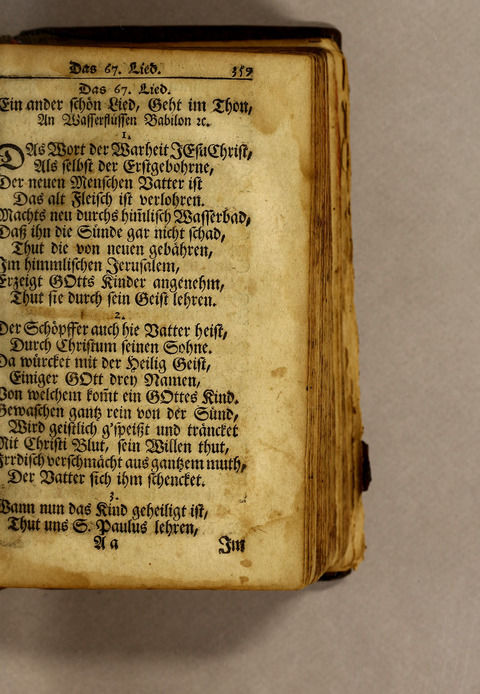 Das 67. Lied. 359
Das 67. Lied.
Ein ander schön Lied, Geht im Thon,
An Wasserflüssen Babilon ꝛc.
1.
DAs Wort der Warheit JEsu Christ,
Als selbst der Erstgebohrne,
Der neuen Menschen Vatter ist
Das alt Fleisch ist verlohren.
Machts neu durchs him̃lisch Wasserbad,
Daß ihn die Sünde gar nicht schad,
Thut die von neuen gebähren,
Im himmlischen Jerusalem,
Erzeigt GOtts Kinder angenehm,
Thut sie durch sein Geist lehren.
2.
Der Schöpffer auch hie Vatter heist,
Durch Christum seinen Sohne.
Da würcket mit der Heilig Geist,
Einiger GOtt drey Namen,
Von welchem kom̃t ein GOttes Kind.
Gewaschen gantz rein von der Sünd,
Wird geistlich g'speißt und träncket
Mit Christi Blut, sein Willen thut,
Irrdisch verschmächt aus gantzem muth,
Der Vatter sich ihm schencket.
3.
Wann nun das Kind geheiligt ist,
Thut uns S. Paulus lehren,
A a Im